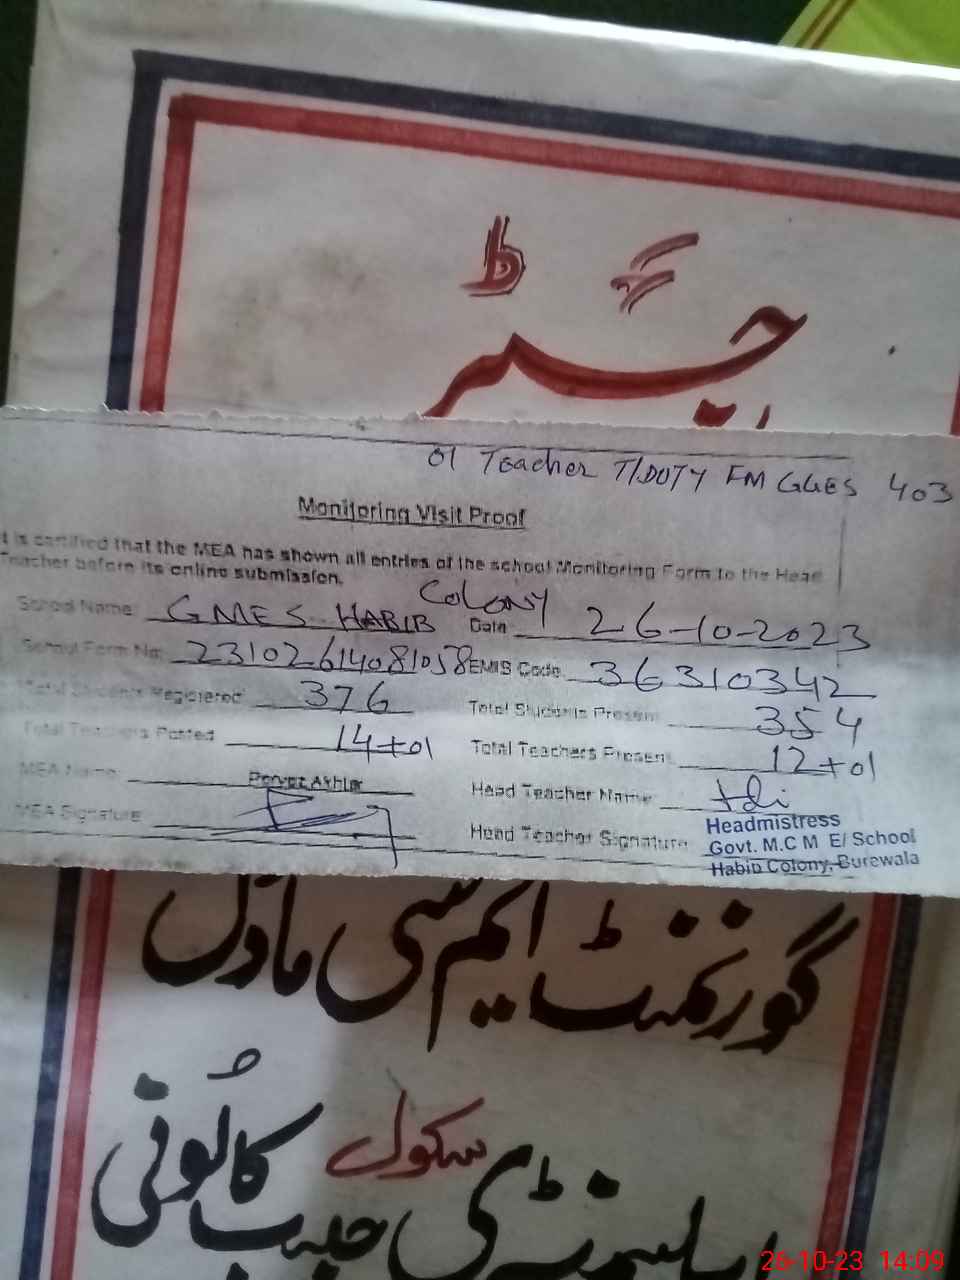 رجسٹر
01 Teacher T/DUTY FM GGES 403
Monitoring Visit Proof
t is certified that the MEA has shown all entries of the school Monitoring Form to the Head
Teacher before its online submission.
School Name GMES HABIB Colony Date 26-10-2023
School Form No: 23102614081058 EMIS Code 36310342
Total Students Registered 376 Total Students Present 354
Total Teachers Posted 14+01 Total Teachers Present 12+01
MEA Name Pervez Akhtar Head Teacher Name
MEA Signature Head Teacher Signature
Headmistress
Govt. M.C M E/ School
Habib Colony, Burewala
گورنمنٹ ایم سی ماڈل
ایلیمنٹری سکول حبیب کالونی
26-10-23 14:09